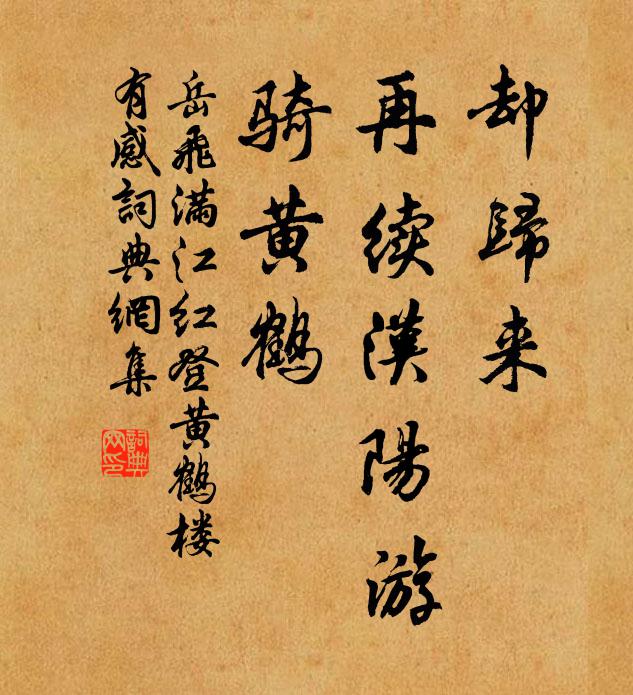 却歸来
再续漢陽游
騎黄鶴
岳飛滿江红登黄鶴楼
有感詞典網集
詞典
网印